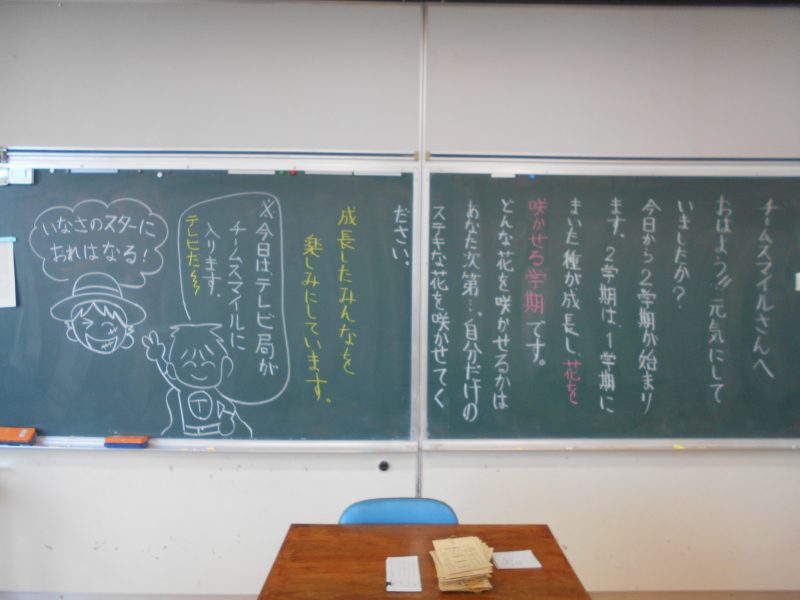 チームスマイルさんへ
おはよう!!元気にして
いましたか？
今日から２学期が始まり
ます。２学期は、１学期に
まいた種が成長し、花を
咲かせる学期です。
どんな花を咲かせるかは
あなた次第…。自分だけの
ステキな花を咲かせてく
ださい。
成長したみんなを
楽しみにしています。
※今日は、テレビ局が
チームスマイルに
入ります。
テレビだ〜
いなさのスターに
おれはなる！
T